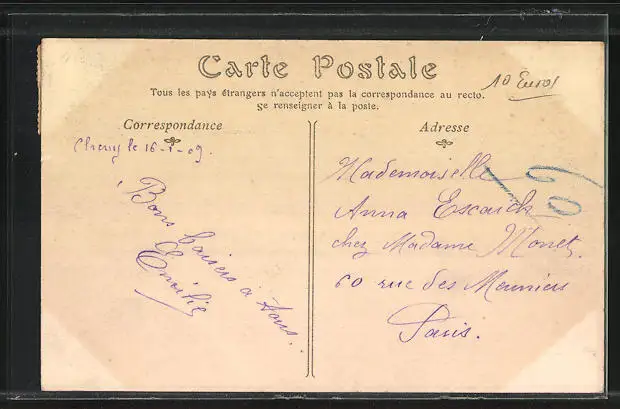 Carte Postale
10 Euros
Tous les pays étrangers n'acceptent pas la correspondance au recto.
se renseigner à la poste.
Correspondance
le 16-1-09.
Bons baisers à tous.
Emilie
Adresse
Mademoiselle
Anna
chez Madame Monet.
60 rue des Meuniers
Paris.